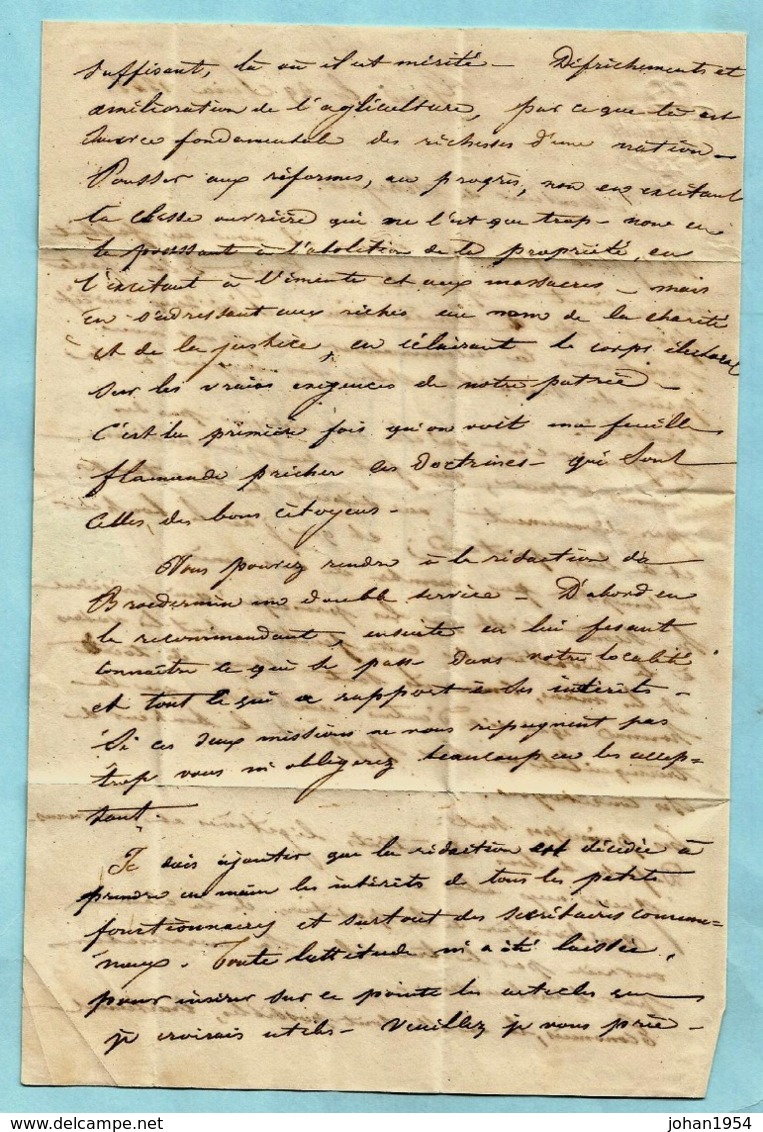 suffisant, là où il est mérité - Défrichements et
amélioration de l'agliculture, par ce que là est
source fondamentale des richesses d'une nation -
Pousser aux réformes, au progrès, non en excitant
la classe ouvrière qui ne l'est que trop - non en
la poussant à l'abolition de la propriété, en
l'excitant à l'émeute et aux massacres - mais
en s'adressant aux riches au nom de la charité
et de la justice, en éclairant le corps électoral
sur les vraies exigences de notre patrie -
C'est la première fois qu'on voit une feuille
flamande prêcher ces doctrines - qui sont
celles des bons citoyens -
Vous pouvez rendre à la rédaction du
Broedermin un double service - D'abord en
la recommandant, ensuite en lui fesant
connaître ce qui se passe dans votre localité
et tout ce qui a rapport à ses intérêts -
Si ces deux missions ne vous répugnent pas
trop vous m'obligerez beaucoup en les accep-
tant.
Je dois ajouter que la rédaction est décidée à
prendre en main les intérêts de tous les petits
fonctionnaires et surtout des secrétaires commu-
naux. Toute lattitude m'a été laissée,
pour insérer sur ce point les articles que
je croirais utils - Veuillez je vous prie -
Delcampe.net
johan1954